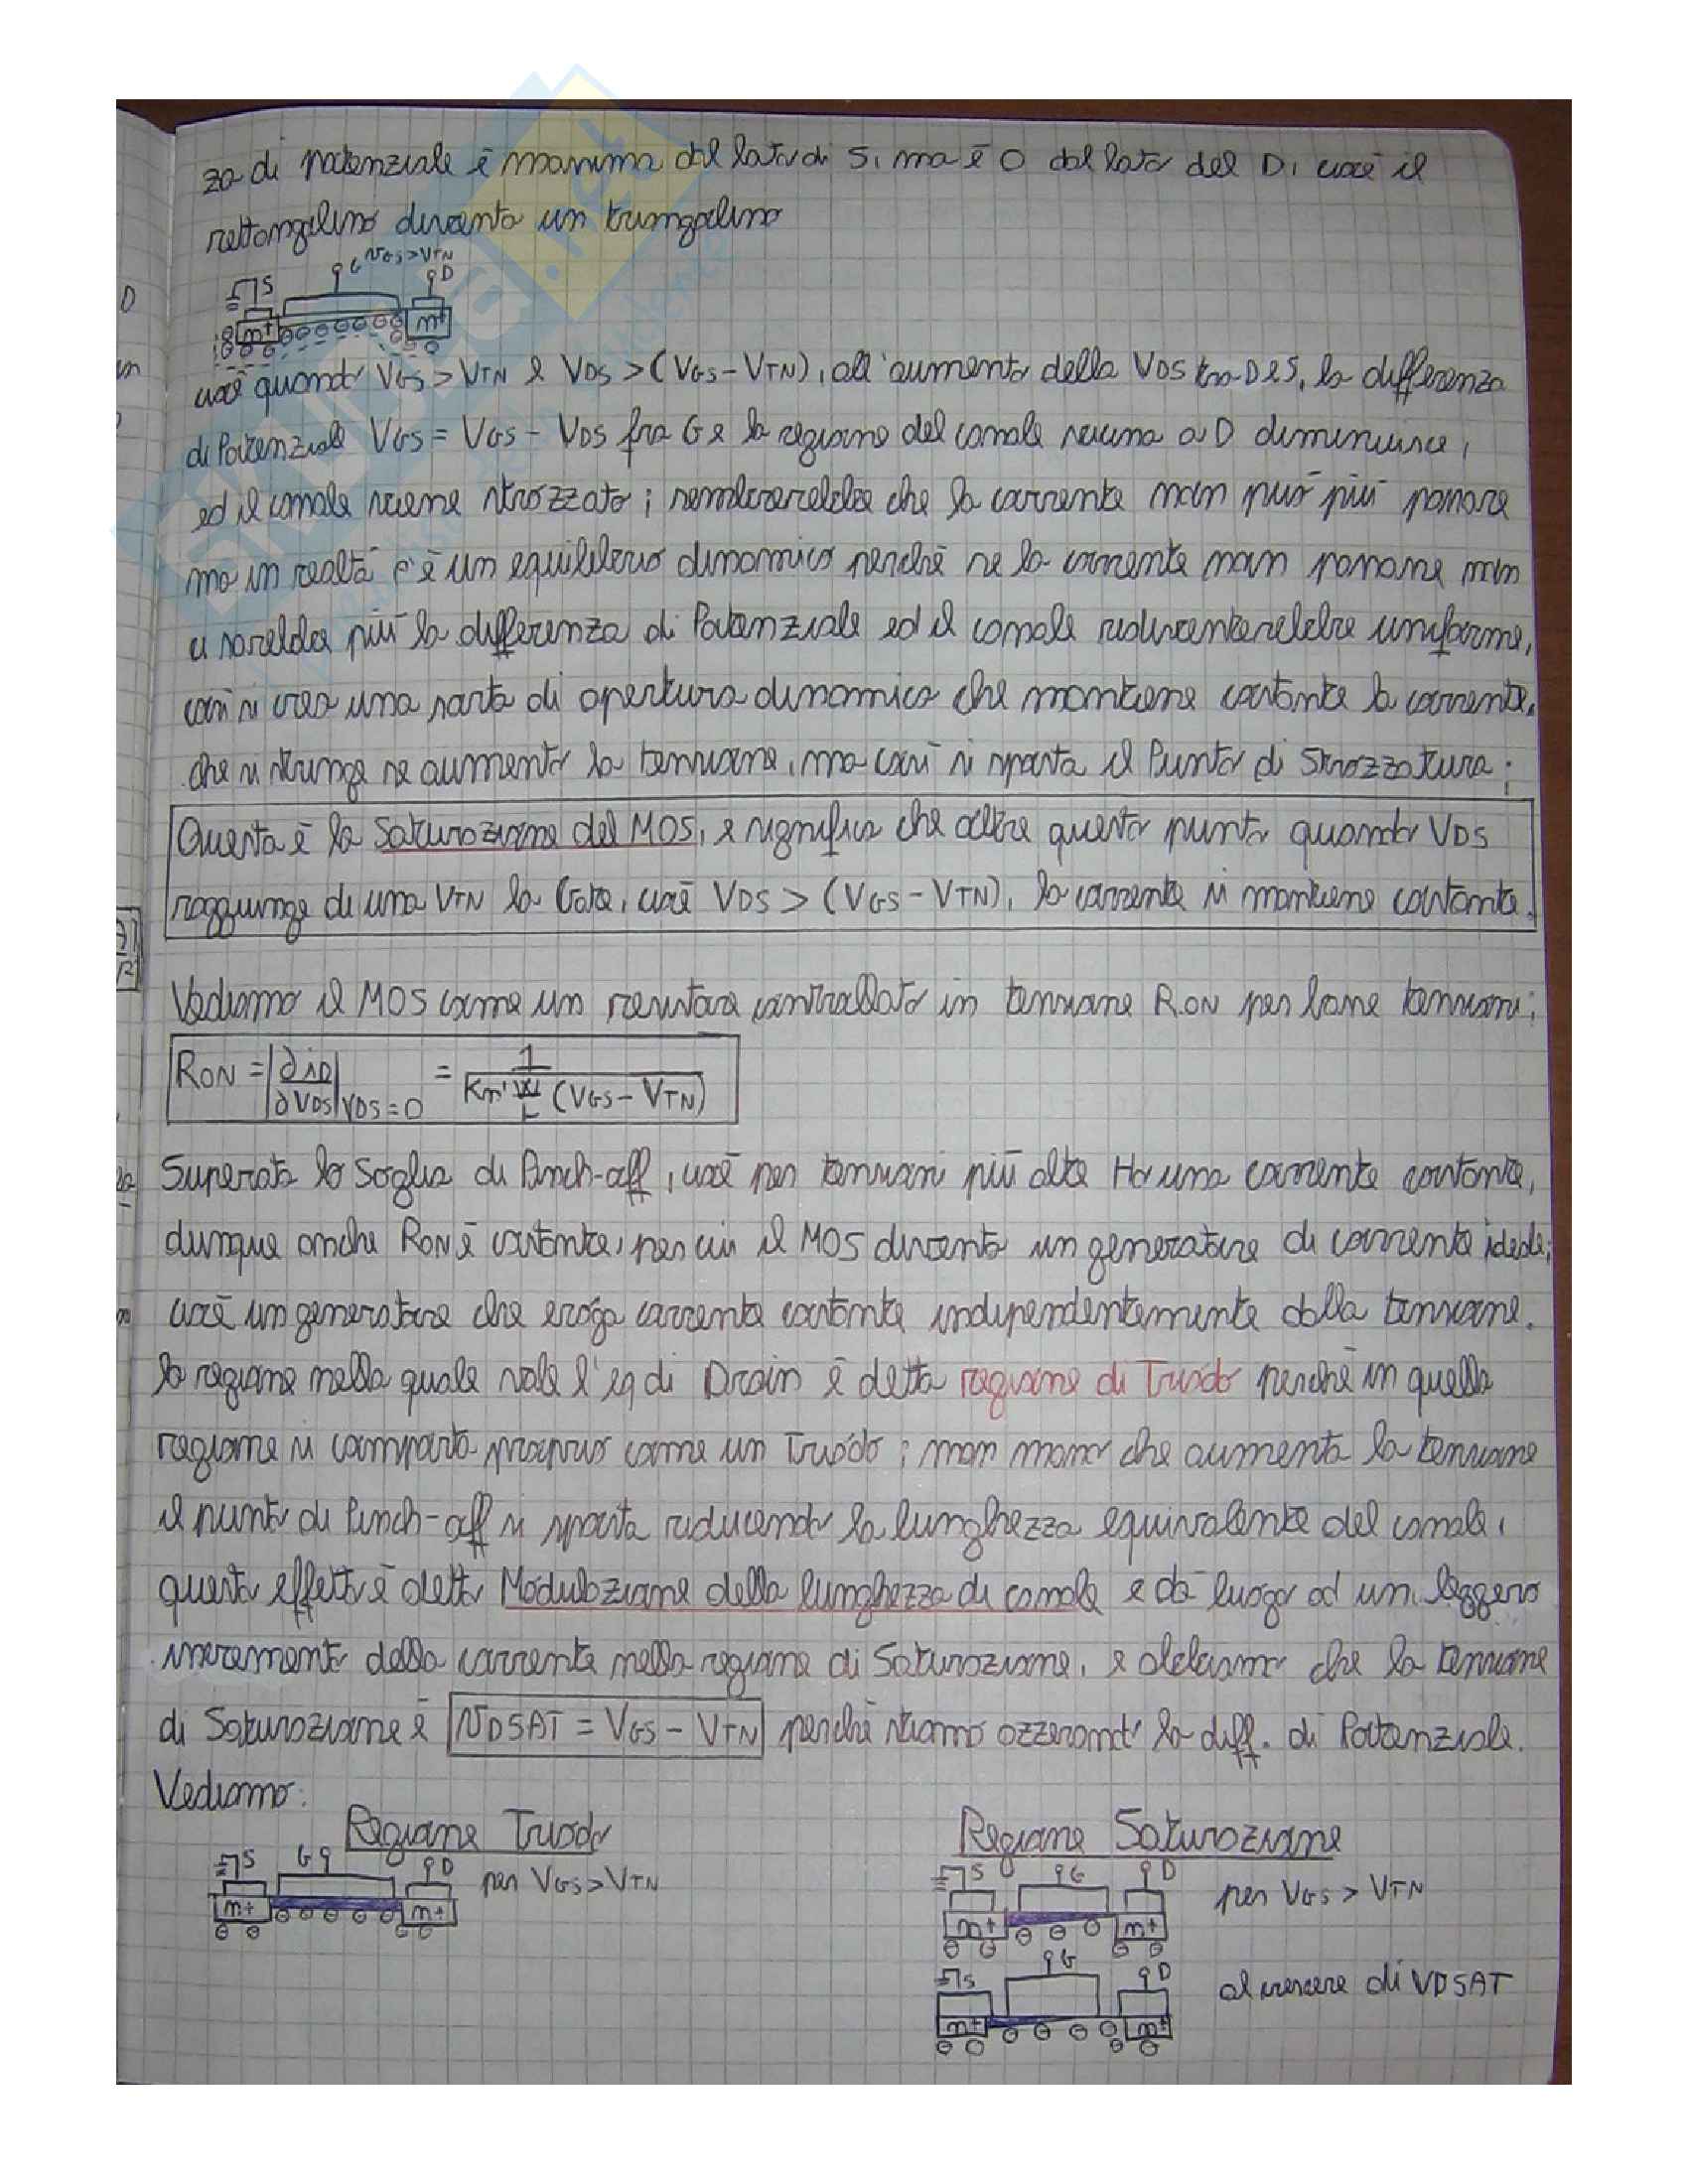 za di potenziale è massima dal lato di S, ma è 0 dal lato del D, cioè il
rettangolino diventa un triangolino
S G VGS>VTN D
n+ n+
cioè quando VGS > VTN e VDS > (VGS - VTN), all'aumento della VDS tra D e S, la differenza
di Potenziale VGS = VGS - VDS fra G e la regione del canale vicina a D diminuisce,
ed il canale viene strozzato; sembrerebbe che la corrente non può più passare
ma in realtà c'è un equilibrio dinamico perchè se la corrente non passasse non
ci sarebbe più la differenza di Potenziale ed il canale ridiventerebbe uniforme,
così si crea una sorta di apertura dinamica che mantiene costante la corrente,
che si stringe se aumento la tensione, ma così si sposta il Punto di Strozzatura;
Questa è la Saturazione del MOS, e significa che oltre questo punto quando VDS
raggiunge di una VTN la Gate, cioè VDS > (VGS - VTN), la corrente si mantiene costante.
Vediamo il MOS come un resistore controllato in tensione RON per basse tensioni;
RON = |∂iD/∂VDS|VDS=0 = 1/(Kn' W/L (VGS - VTN))
Superata la Soglia di Pinch-off, cioè per tensioni più alte Ho una corrente costante,
dunque anche RON è costante, per cui il MOS diventa un generatore di corrente ideale,
cioè un generatore che eroga corrente costante indipendentemente dalla tensione.
la regione nella quale vale l'eq di Drain è detta regione di Triodo perchè in quella
regione si comporta proprio come un Triodo; man mano che aumenta la tensione
il punto di Pinch-off si sposta riducendo la lunghezza equivalente del canale,
questo effetto è detto Modulazione della lunghezza di canale e dà luogo ad un leggero
incremento della corrente nella regione di Saturazione, e abbiamo che la tensione
di Saturazione è VDSAT = VGS - VTN perchè stiamo azzerando la diff. di Potenziale.
Vediamo:
Regione Triodo Regione Saturazione
S G D per VGS>VTN
n+ n+
S G D per VGS > VTN
n+ n+
S G D al crescere di VDSAT
n+ n+